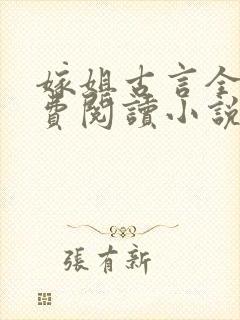 嫁姐古言全
費閱讀小說
張有新